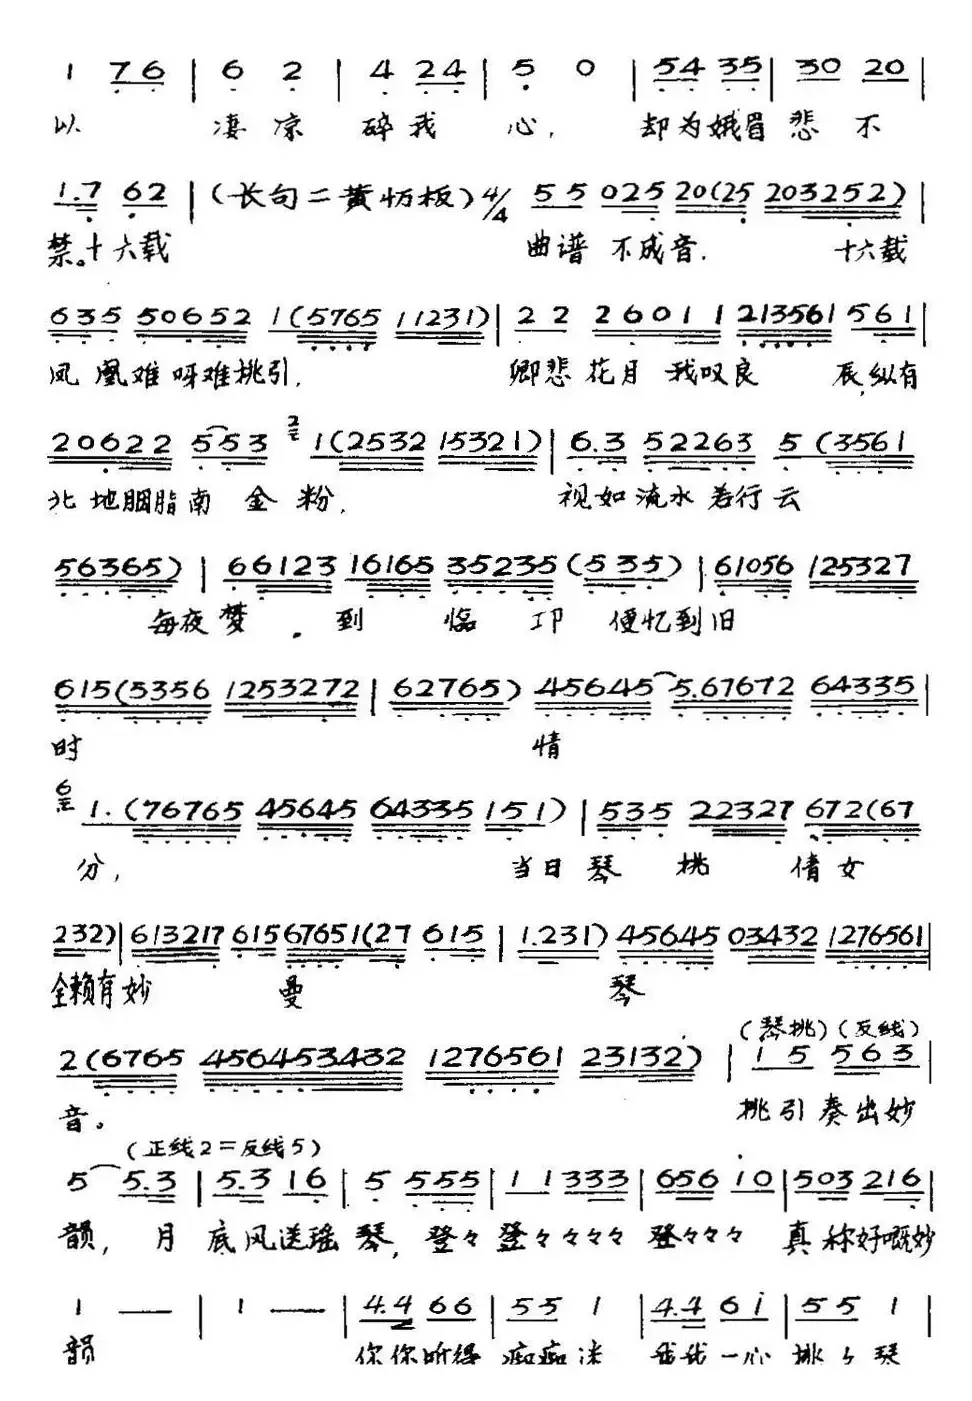 1 76 | 6 2 | 4 24 | 5 0 | 54 35 | 30 20 |
以 凄凉 碎我 心, 却为娥眉悲不
1.7 62 | (长句二黄忉板) 4/4 55 025 20(25 203252) |
禁。十六载 曲谱 不成音. 十六载
635 50652 1(5765 11231) | 22 26011 213561 561 |
凤凰难呀难挑引, 卿悲花月我叹良 辰,纵有
20622 553 2 1(2532 15321) | 6.3 52263 5(3561
北地胭脂南金粉, 视如流水若行云
56365) | 66123 16165 35235 (535) | 61056 125327
每夜梦 . 到 临 邛 便忆到旧
615(5356 1253272 | 62765) 45645 5.67672 64335 |
时 情
6 1.(76765 45645 64335 151) | 535 22327 672(67
分, 当日琴 挑 倩女
232) | 613217 615 67651(27 615 | 1.231) 45645 03432 1276561 |
全赖有妙 曼 琴
(琴挑)(反线)
2(6765 456453432 1276561 23132) | 15 563 |
音。 挑引奏出妙
(正线2=反线5)
5 5.3 | 5.3 16 | 5 555 | 11333 | 656 10 | 503 216 |
韻, 月 底风送瑶 琴, 登々 登々々々々 登々々々 真称好嘅妙
1 — | 1 — | 4.4 66 | 55 1 | 4.4 6i | 55 1 |
韻 你你听得 痴痴迷 我我一心 挑々琴